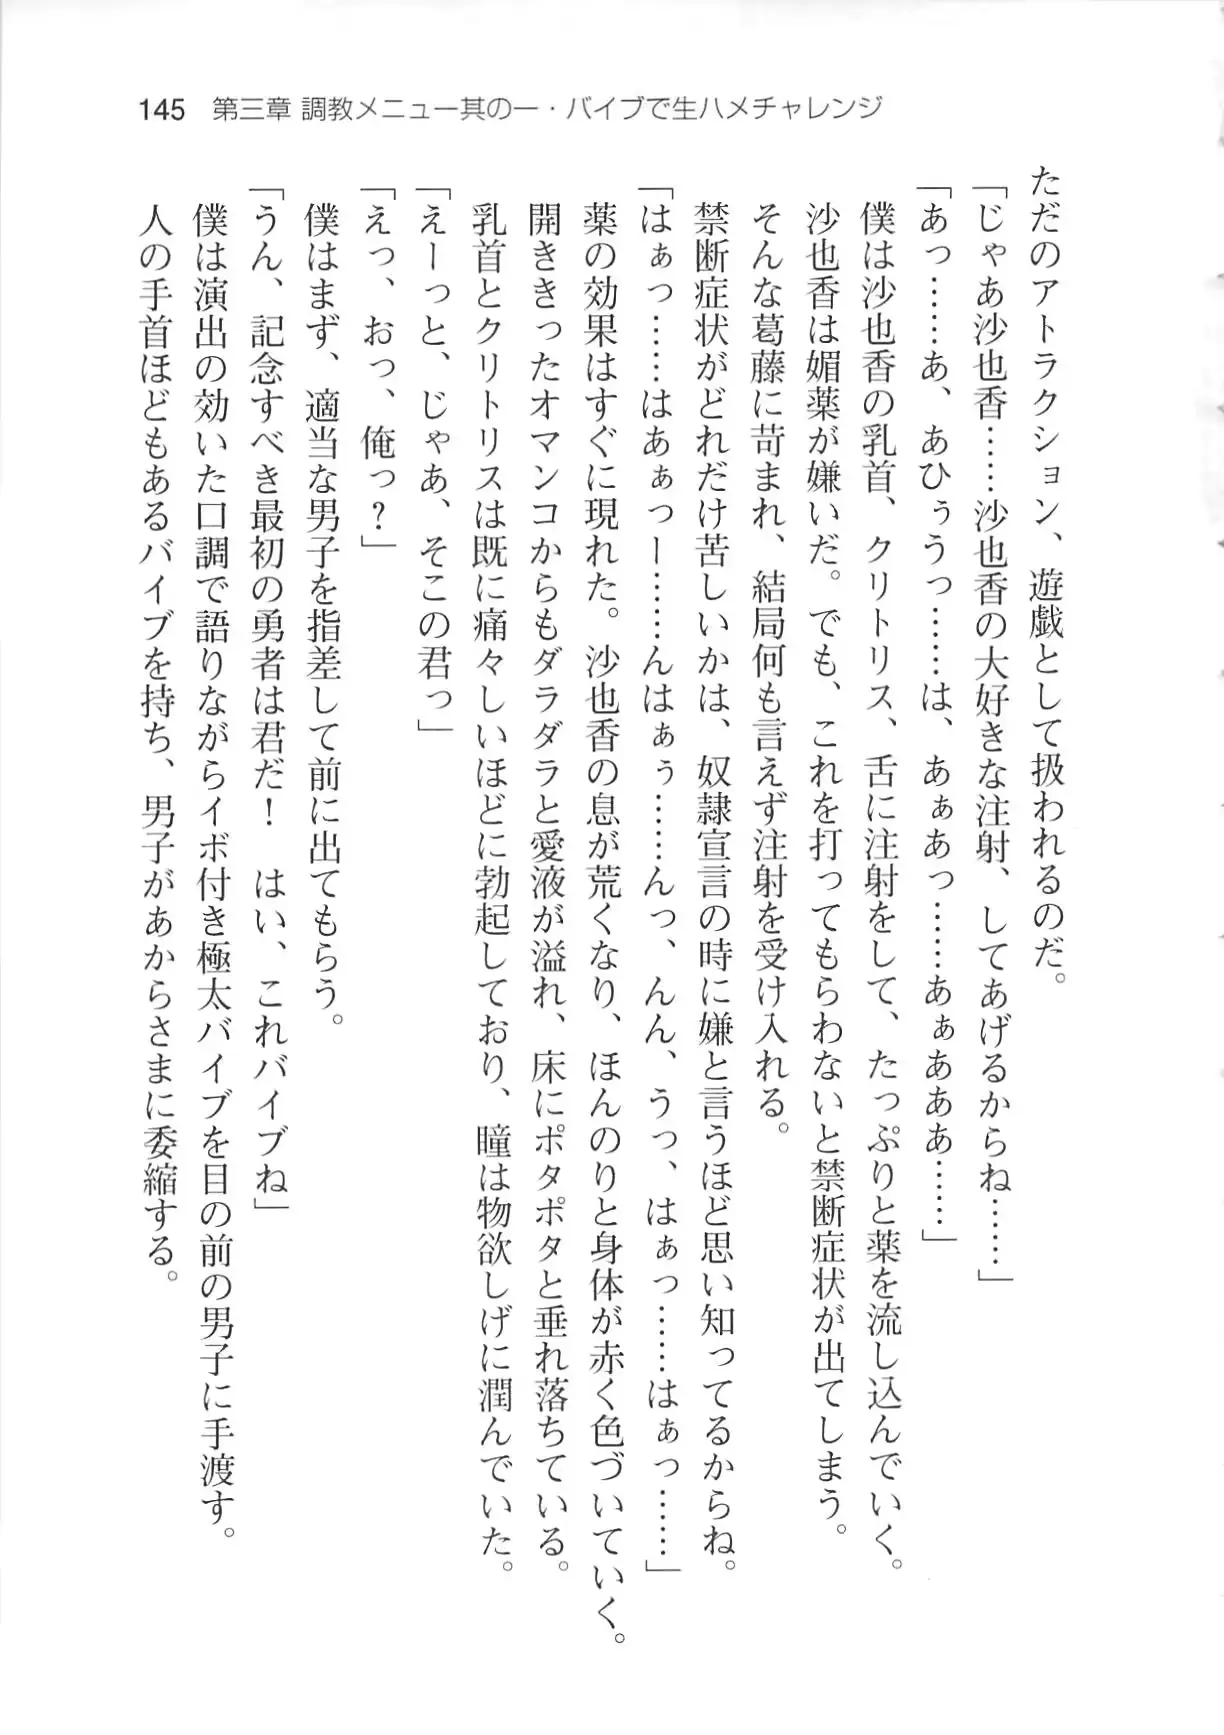 145 第三章 調教メニュー其の一・バイブで生ハメチャレンジ
ただのアトラクション、遊戯として扱われるのだ。
「じゃあ沙也香……沙也香の大好きな注射、してあげるからね……」
「あっ……あ、あひぅうっ……は、あぁあっ……あぁあああ……」
僕は沙也香の乳首、クリトリス、舌に注射をして、たっぷりと薬を流し込んでいく。
沙也香は媚薬が嫌いだ。でも、これを打ってもらわないと禁断症状が出てしまう。
そんな葛藤に苛まれ、結局何も言えず注射を受け入れる。
禁断症状がどれだけ苦しいかは、奴隷宣言の時に嫌と言うほど思い知ってるからね。
「はぁっ……はあぁっー……んはぁぅ……んっ、んん、うっ、はぁっ……はぁっ……」
薬の効果はすぐに現れた。沙也香の息が荒くなり、ほんのりと身体が赤く色づいていく。
開ききったオマンコからもダラダラと愛液が溢れ、床にポタポタと垂れ落ちている。
乳首とクリトリスは既に痛々しいほどに勃起しており、瞳は物欲しげに潤んでいた。
「えーっと、じゃあ、そこの君っ」
「えっ、おっ、俺っ？」
僕はまず、適当な男子を指差して前に出てもらう。
「うん、記念すべき最初の勇者は君だ！　はい、これバイブね」
僕は演出の効いた口調で語りながらイボ付き極太バイブを目の前の男子に手渡す。
人の手首ほどもあるバイブを持ち、男子があからさまに委縮する。